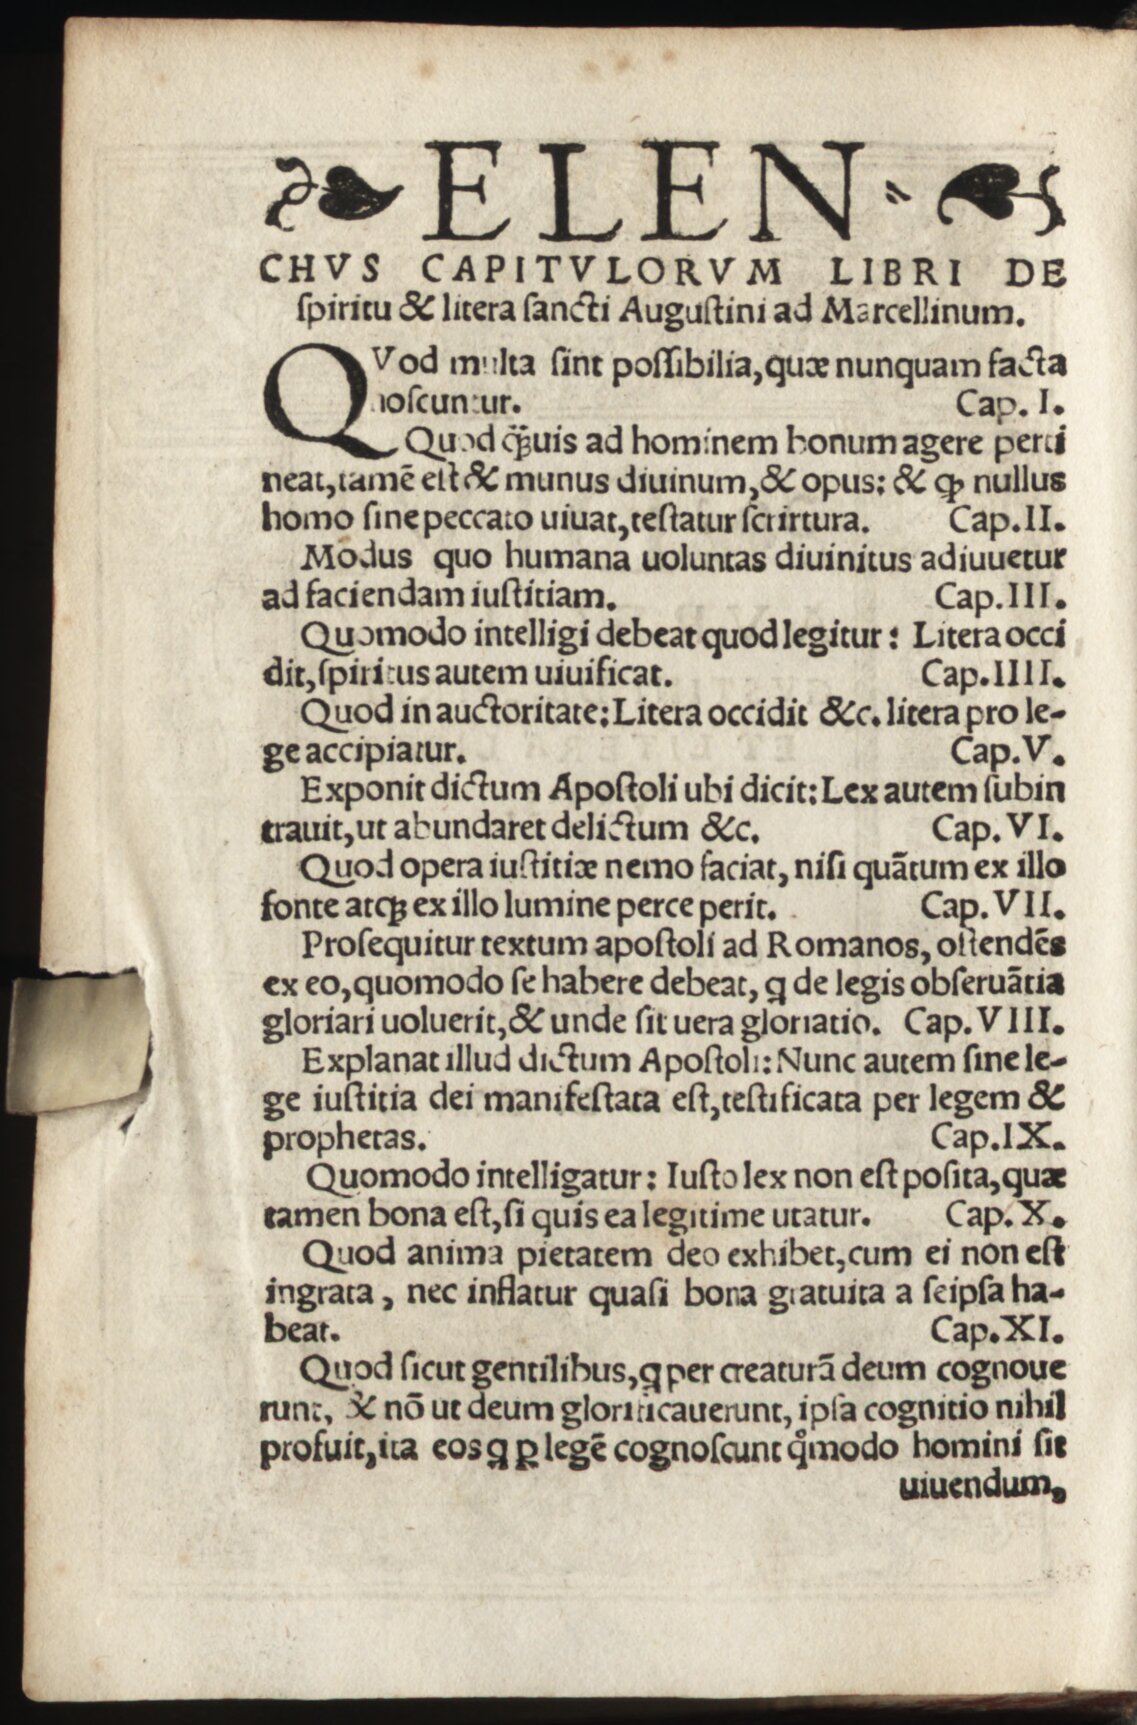 ELEN⸗
CHVS CAPITVLORVM LIBRI DE
ſpiritu & litera ſancti Auguſtini ad Marcellinum.
QVod multa ſint poſſibilia, quæ nunquam facta
noſcuntur. Cap. I.
Quod ꝙ̃uis ad hominem bonum agere perti
neat, tamẽ eſt & munus diuinum, & opus: & ꝙ nullus
homo ſine peccato uiuat, teſtatur ſcrirtura. Cap. II.
Modus quo humana uoluntas diuinitus adiuuetur
ad faciendam iuſtitiam. Cap. III.
Quomodo intelligi debeat quod legitur: Litera occi
dit, ſpiritus autem uiuificat. Cap. IIII.
Quod in auctoritate: Litera occidit &c. litera pro le-
ge accipiatur. Cap. V.
Exponit dictum Apoſtoli ubi dicit: Lex autem ſubin
trauit, ut abundaret delictum &c. Cap. VI.
Quod opera iuſtitiæ nemo faciat, niſi quãtum ex illo
fonte atqꝫ ex illo lumine perceperit. Cap. VII.
Proſequitur textum apoſtoli ad Romanos, oſtendẽs
ex eo, quomodo ſe habere debeat, q̇ de legis obſeruãtia
gloriari uoluerit, & unde ſit uera gloriatio. Cap. VIII.
Explanat illud dictum Apoſtoli: Nunc autem ſine le-
ge iuſtitia dei manifeſtata eſt, teſtificata per legem &
prophetas. Cap. IX.
Quomodo intelligatur: Iuſto lex non eſt poſita, quæ
tamen bona eſt, ſi quis ea legitime utatur. Cap. X.
Quod anima pietatem deo exhibet, cum ei non eſt
ingrata, nec inflatur quaſi bona gratuita a ſeipſa ha-
beat. Cap. XI.
Quod ſicut gentilibus, ꝗ per creaturã deum cognoue
runt, & nõ ut deum glorificauerunt, ipſa cognitio nihil
profuit, ita eos ꝗ ꝑ legẽ cognoſcunt q̊modo homini ſit
uiuendum,